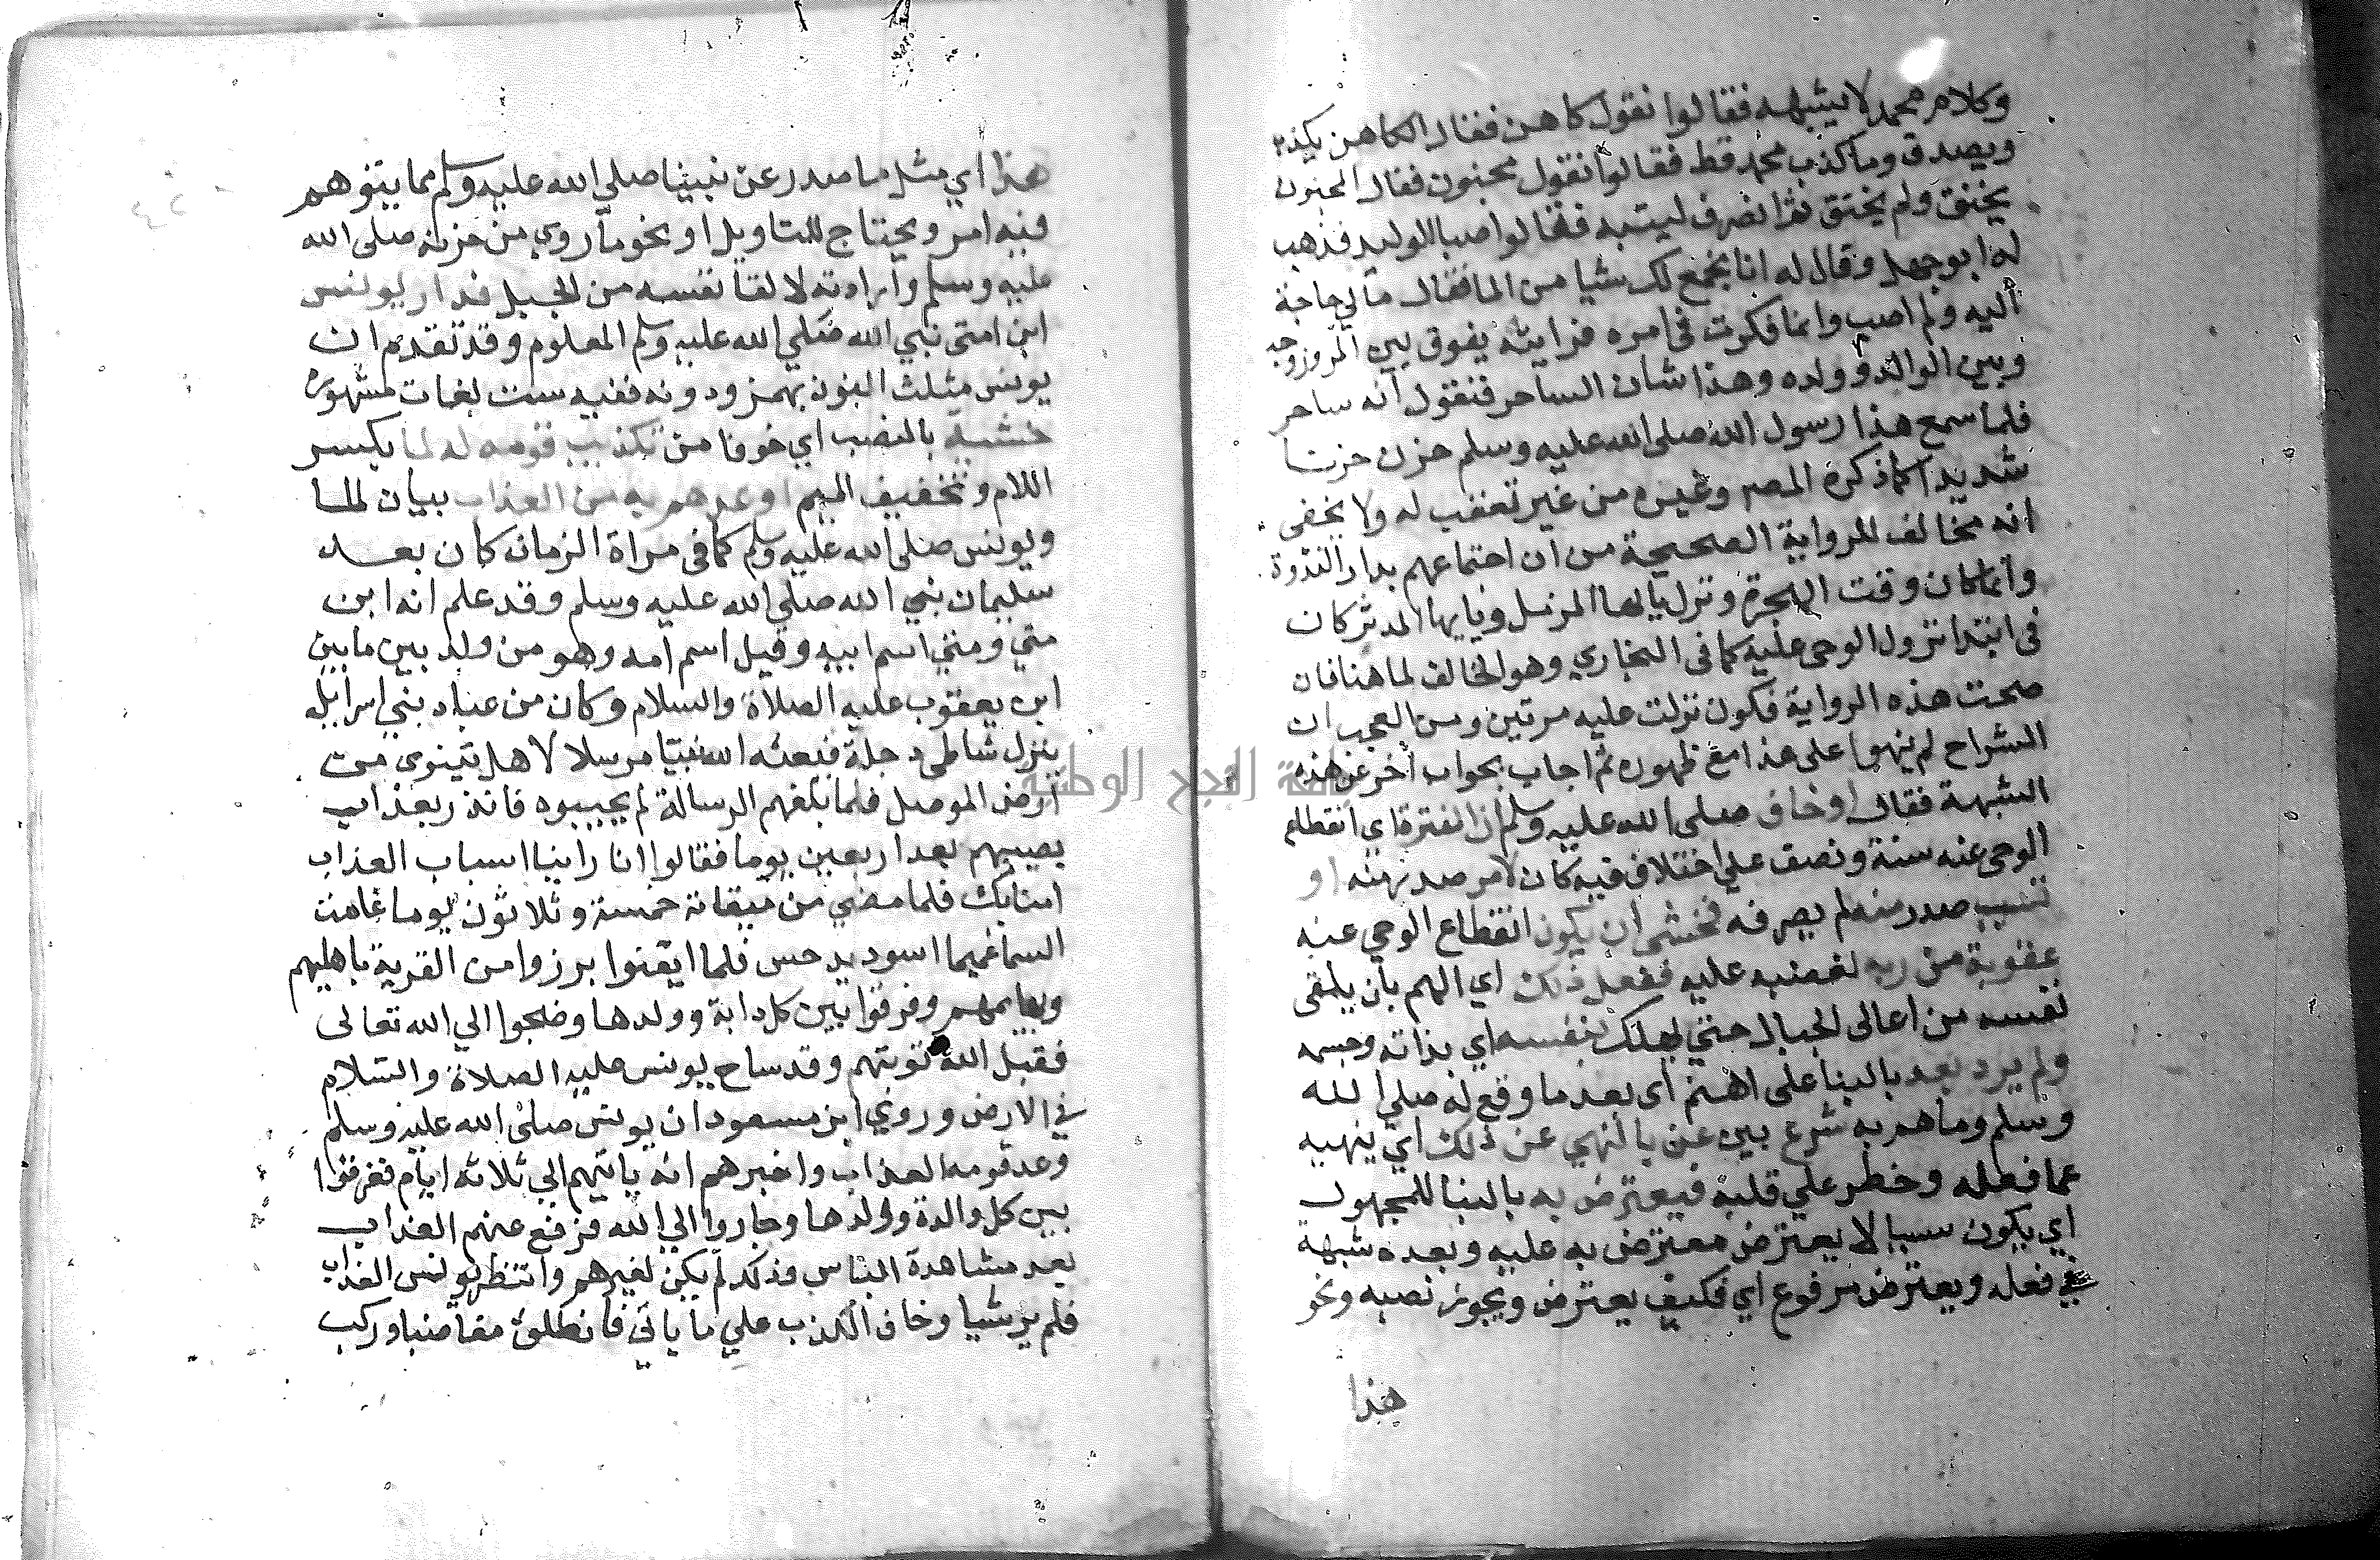 وكلام محمد لا يشبهه فقالوا نقول كاهن فقال الكاهن يكذب
ويصدق وما كذب محمد قط فقالوا نقول مجنون فقال المجنون
يخنق ولم يختنق ثم انصرف لبيته فقالوا صبا الوليد فذهب
له ابو جهل وقال له انا نجمع لك شيا من الما فقال مالي حاجة
اليه ولم اصب وانما فكرت في امره فرايته يفرق بين المر وزوجه
وبين الوالد وولده وهذا شان الساحر فنقول انه ساحر
فلما سمع هذا رسول الله صلى الله عليه وسلم حزن حزنا
شديدا كما ذكره المصر وغيره من غير تعقب له ولا يخفى
انه مخالف للرواية الصحيحة من ان اجتماعهم بدار الندوة
وانما كان وقت الهجرة ونزل يايها المزمل ويايها المدثر كان
في ابتدا نزول الوحي عليه كما في البخاري وهو المخالف لما هنا فان
صحت هذه الرواية فكون نزلت عليه مرتين ومن العجب ان
الشراح لم ينبهوا على هذا مع ظهوره ثم اجاب بجواب اخر عن هذه
الشبهة فقال او خاف صلى الله عليه وسلم ان الفترة اي انقطاع
الوحي عنه سنة ونصف على اختلاف فيه كان لامر صدر منه او
سبب صدر منه لم يعرفه فخشى ان يكون انقطاع الوحي عنه
عقوبة من ربه لغضبه عليه ففعل ذلك اي الهم بان يلقى
نفسه من اعالى الجبال حتى يهلك بنفسه اي بذاته وجسمه
ولم يرد بعد بالبنا على الضم اى بعد ما وقع له صلى الله
وسلم وما هم به شرع بين عن بالنهي عن ذلك اي ينهيه
عما فعله وخطر علي قلبه فيعترض به بالبنا للمجهول
اي يكون سببا لا يعترض معترض به عليه وبعده شبهة
في فعله ويعترض مرفوع اي فكيف يعترض ويجوز نصبه ونحو
هذا
هذا اي مثل ما صدر عن نبينا صلي الله عليه وسلم مما يتوهم
فيه امر ويحتاج للتاويل او نحو ما روي من حزنه صلى الله
عليه وسلم وارادته لالقا نفسه من الجبل فرار يونس
ابن امتى نبي الله صلي الله عليه وسلم المعلوم وقد تقدم ان
يونس مثلث النون بهمز ودونه ففيه ست لغات مشهورة
خشية بالنصب اي خوفا من تكذيب قومه له لما بكسر
اللام وتخفيف الميم اوعدهم به من العذاب بيان لما
ويونس صلى الله عليه وسلم كما في مراة الزمان كان بعد
سليمان نبي الله صلي الله عليه وسلم وقد علم انه ابن
متي ومتي اسم ابيه وقيل اسم امه وهو من ولد بين مابين
ابن يعقوب عليه الصلاة والسلام وكان من عباد بني اسرايل
ينزل شاطى دجلة فبعثه الله نبيا مرسلا لاهل نينوى من
ارض الموصل فلما بلغهم الرسالة لم يجيبوه فانذر بعذاب
يصيبهم بعد اربعين يوما فقالوا انا راينا اسباب العذاب
امنا بك فلما مضي من ميقاته خمسة وثلاثون يوما غامت
السما غيما اسود يدخن فلما ايقنوا برزوا من القرية باهليهم
وبهايمهم وفرقوا بين كل دابة وولدها وضجوا الي الله تعالى
فقبل الله توبتهم وقد ساح يونس عليه الصلاة والسلام
في الارض وروي ابن مسعود ان يونس صلى الله عليه وسلم
وعد قومه العذاب واخبرهم انه ياتيهم الي ثلاثه ايام ففرقوا
بين كل والدة وولدها وجاروا الي الله فرفع عنهم العذاب
بعد مشاهدة الناس وذكد لم يكن لغيرهم وانتظر يونس العذاب
فلم ير شيا وخاف الكذب علي ما ياتي فانطلق مغاضبا وركب
جامعة النجاح الوطنية